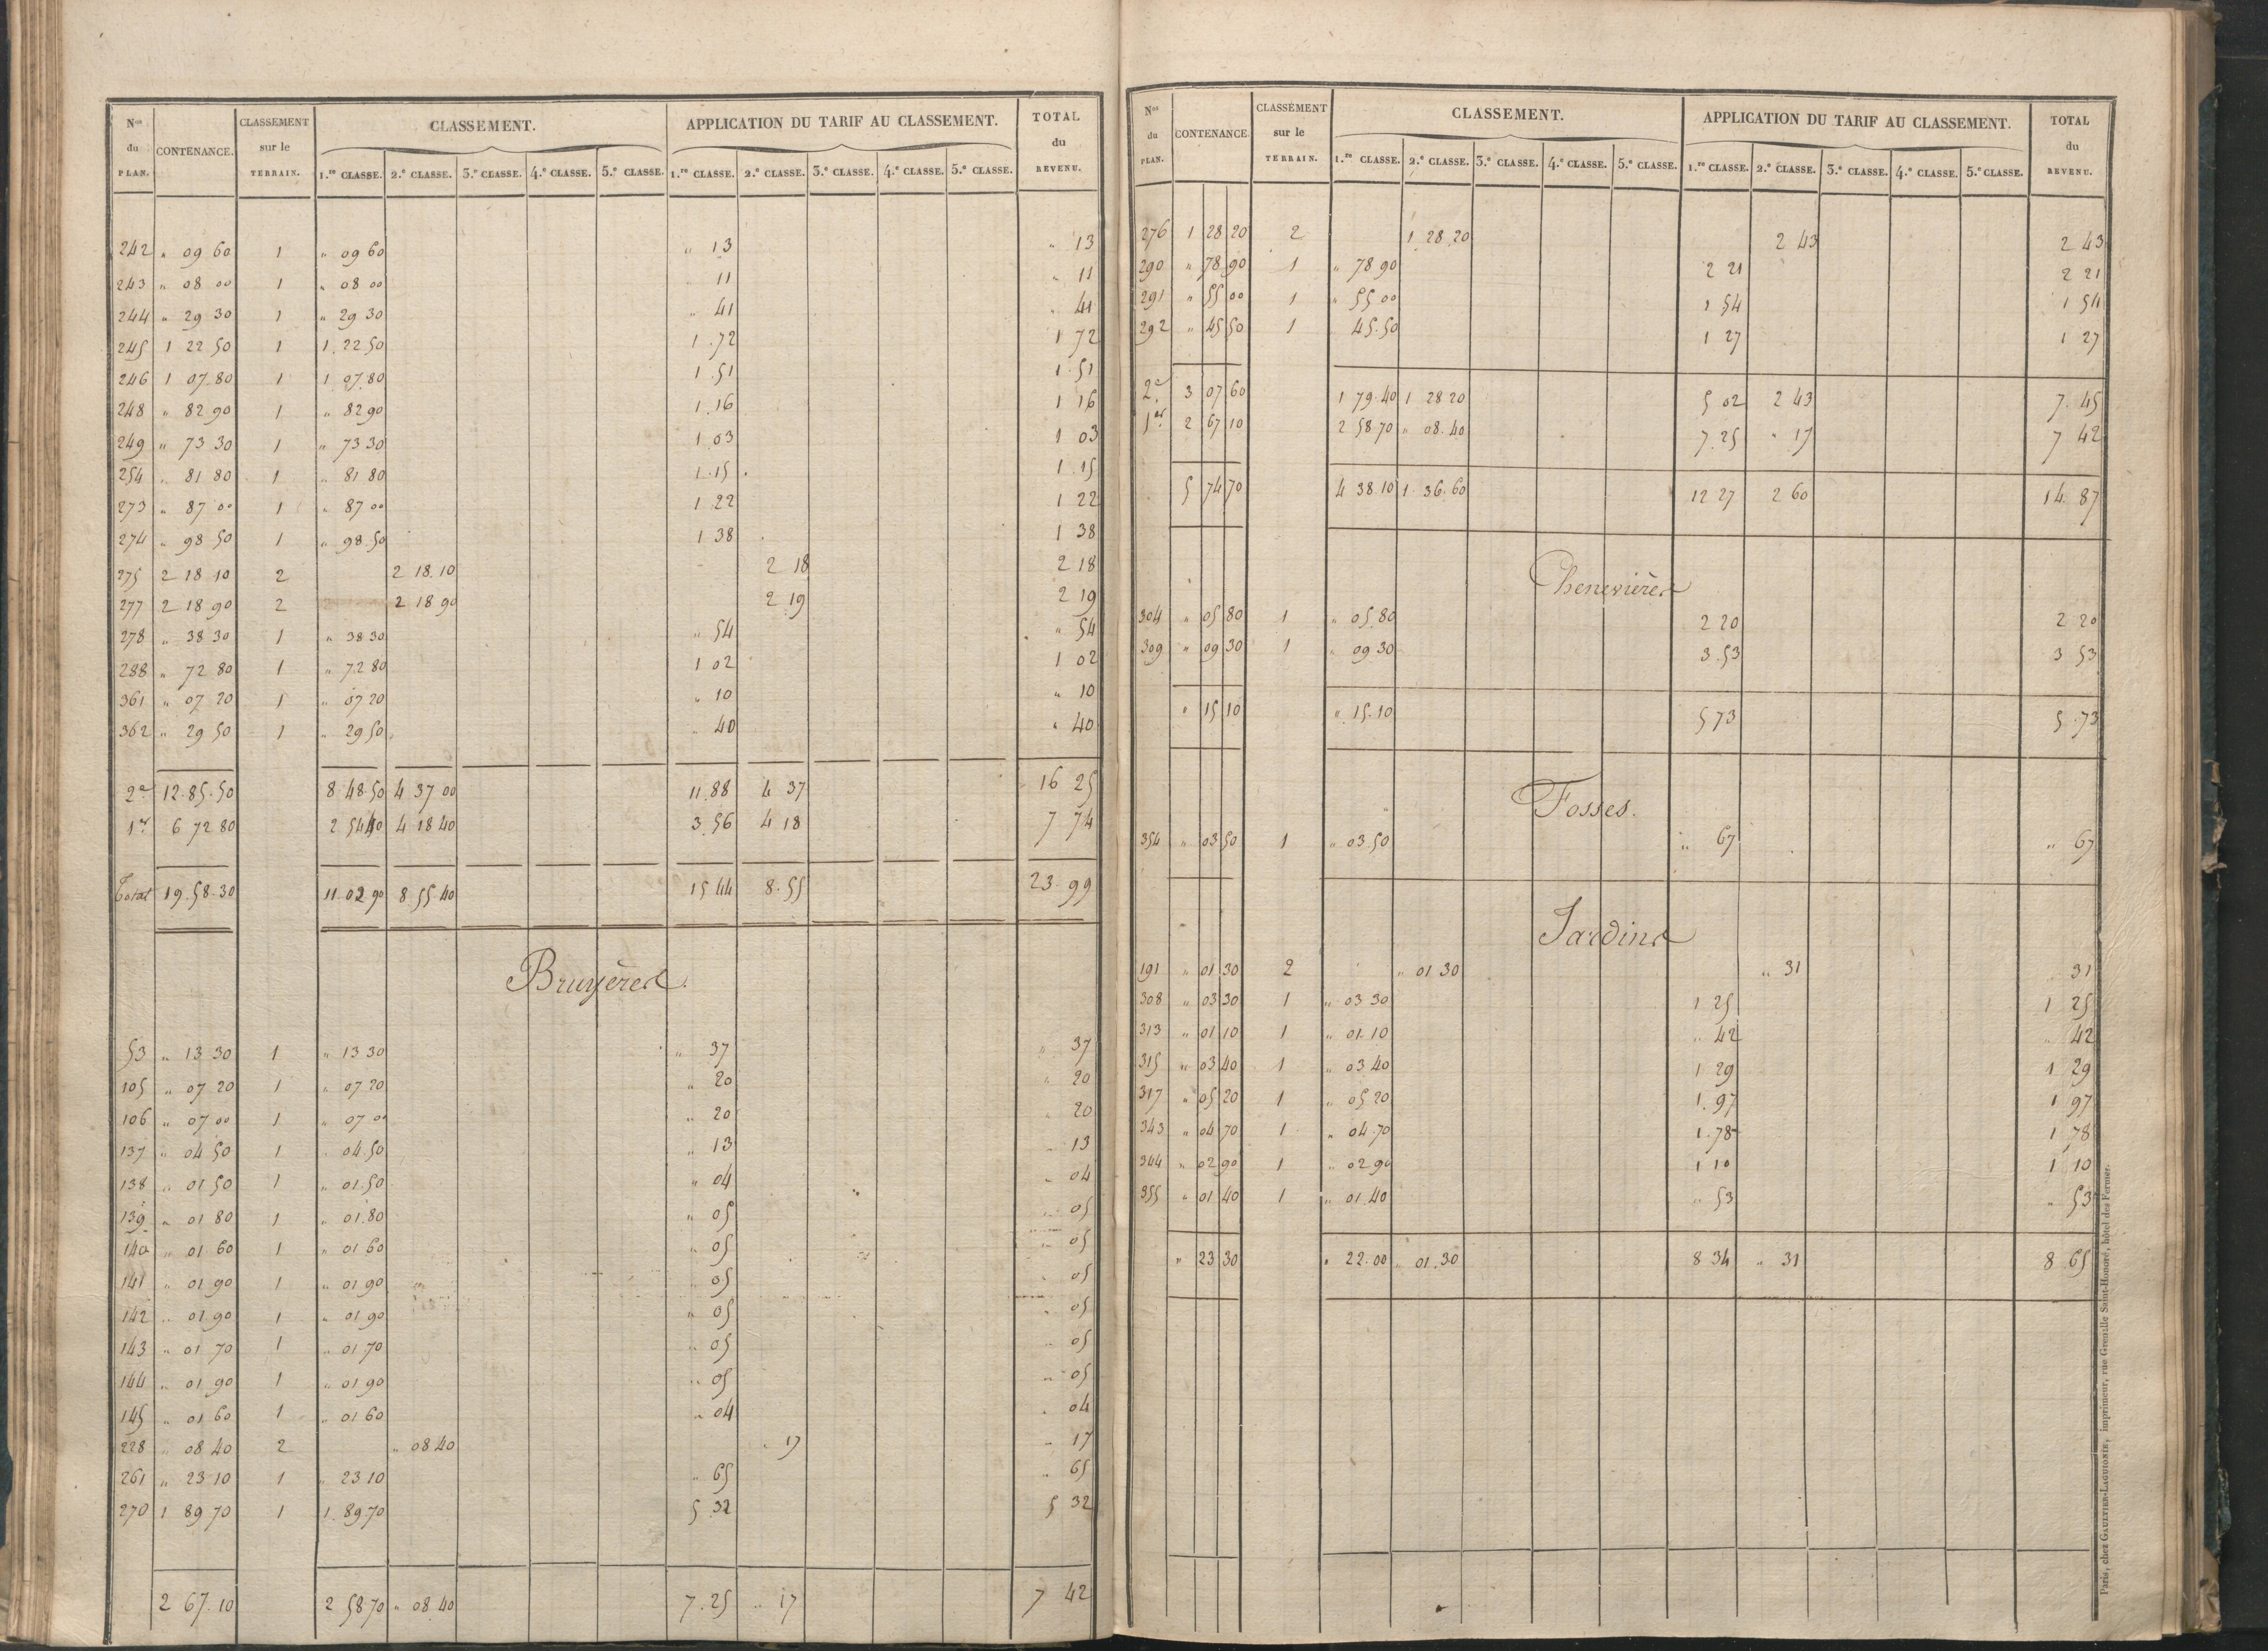 Nos du PLAN. CONTENANCE. CLASSEMENT sur le TERRAIN. CLASSEMENT. APPLICATION DU TARIF AU CLASSEMENT. TOTAL du REVENU.
1.re CLASSE. 2.e CLASSE. 3.e CLASSE. 4.e CLASSE. 5.e CLASSE. 1.re CLASSE. 2.e CLASSE. 3.e CLASSE. 4.e CLASSE. 5.e CLASSE.
242 " 09 60 1 " 09 60 " 13 " 13
243 " 08 00 1 " 08 00 " 11 " 11
244 " 29 30 1 " 29 30 " 41 " 41
245 1 22 50 1 1. 22 50 1.72 1 72
246 1 07.80 1 1 07.80 1.51 1.51
248 " 82 90 1 " 82 90 1.16 1 16
249 " 73 30 1 " 73 30 1.03 1 03
254 " 81 80 1 " 81 80 1.15 1.15
273 " 87 00 1 " 87 00 1 22 1 22
274 " 98 50 1 " 98.50 1 38 1 38
275 2 18 10 2 2 18.10 2 18 2 18
277 2 18 90 2 2 18 90 2 19 2 19
278 " 38 30 1 " 38 30 " 54 " 54
288 " 72 80 1 " 72 80 1 02 1 02
361 " 07 20 1 " 07 20 " 10 " 10
362 " 29 50 1 " 29 50 " 40 " 40
2e 12.85.50 8.48.50 4 37 00 11.88 4 37 16 25
1er 6 72 80 2 54 40 4 18 40 3.56 4 18 7 74
Total 19.58.30 11.02 90 8.55.40 15.44 8.55 23.99
Bruyères.
53 " 13 30 1 " 13 30 " 37 " 37
105 " 07 20 1 " 07 20 " 20 " 20
106 " 07 00 1 " 07 00 " 20 " 20
137 " 04 50 1 " 04.50 " 13 " 13
138 " 01 50 1 " 01.50 " 04 " 04
139 " 01 80 1 " 01.80 " 05 " 05
140 " 01 60 1 " 01 60 " 05 " 05
141 " 01 90 1 " 01 90 " 05 " 05
142 " 01 90 1 " 01 90 " 05 " 05
143 " 01 70 1 " 01 70 " 05 " 05
144 " 01 90 1 " 01 90 " 05 " 05
145 " 01 60 1 " 01 60 " 04 " 04
228 " 08 40 2 " 08 40 " 17 " 17
261 " 23 10 1 " 23 10 " 65 " 65
270 1 89 70 1 1. 89.70 5 32 5 32
2 67.10 2 58.70 " 08.40 7.25 " 17 7 42
Nos du PLAN. CONTENANCE. CLASSEMENT sur le TERRAIN. CLASSEMENT. APPLICATION DU TARIF AU CLASSEMENT. TOTAL du REVENU.
1.re CLASSE. 2.e CLASSE. 3.e CLASSE. 4.e CLASSE. 5.e CLASSE. 1.re CLASSE. 2.e CLASSE. 3.e CLASSE. 4.e CLASSE. 5.e CLASSE.
276 1 28 20 2 1 28.20 2 43 2 43
290 " 78 90 1 " 78 90 2 21 2 21
291 " 55 00 1 " 55 00 1 54 1 54
292 " 45 50 1 45.50 1 27 1 27
2e 3 07 60 1 79.40 1 28 20 5 02 2 43 7.45
1er 2 67 10 2 58.70 " 08.40 7.25 " 17 7 42
5 74 70 4 38.10 1. 36.60 12 27 2 60 14. 87
Chenevières
304 " 05 80 1 " 05.80 2 20 2 20
309 " 09 30 1 " 09 30 3.53 3 53
" 15 10 " 15.10 5 73 5.73
Fosses.
354 " 03 50 1 " 03.50 " 67 " 67
Jardins
191 " 01 30 2 " 01 30 " 31 " 31
308 " 03 30 1 " 03 30 1 25 1 25
313 " 01 10 1 " 01.10 " 42 " 42
315 " 03 40 1 " 03 40 1 29 1 29
317 " 05 20 1 " 05 20 1.97 1 97
343 " 04 70 1 " 04.70 1.78 1 78
344 " 02 90 1 " 02 90 1 10 1 10
355 " 01 40 1 " 01.40 " 53 " 53
" 23 30 " 22.00 " 01.30 8 34 " 31 8 65
Paris, chez GAULTIER-LAGUIONIE, imprimeur, rue Grenelle Saint-Honoré, hôtel des Fermes.